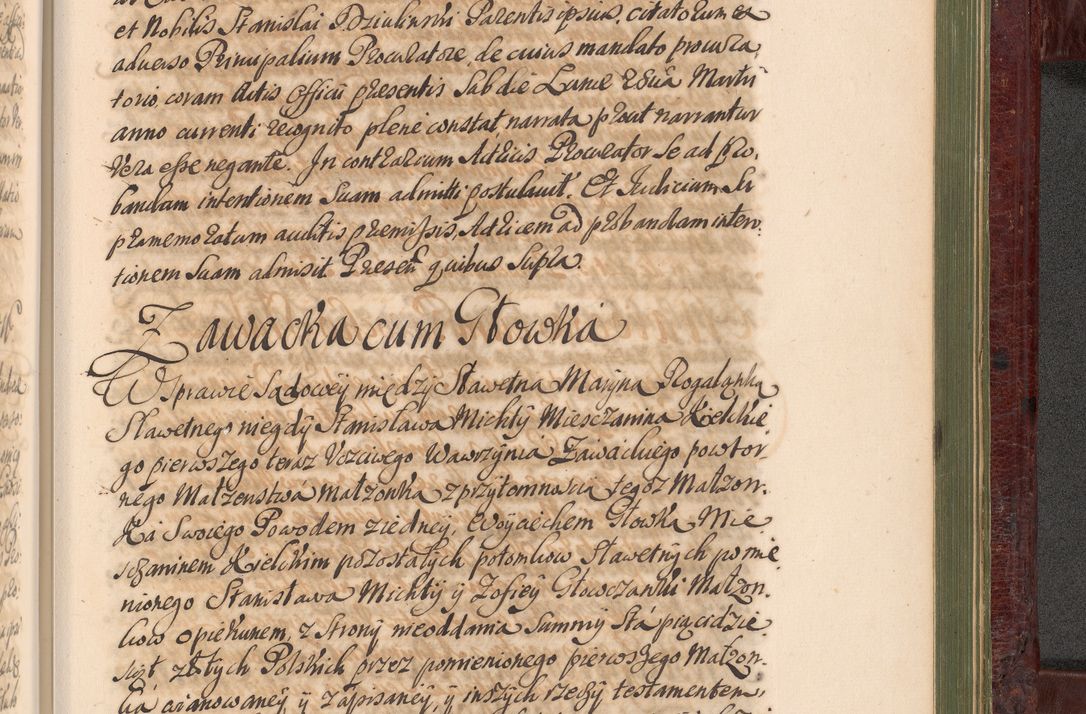 et Nobilis Stanislai Dziulinski Parentis ipsius, citatorum ex
adverso Principalium Procuratore, de cuius mandato procura
torio, coram Actis Officii praesentis Sab die Lunae Martii
anno currenti recognito plene constat, narrata prout narrantur
Vera esse negante. In contrarium Actricis Procurator se ad pro,
bandam intentionem Suam admitti postulavit. Et Iudicium Su
pramemoratum auditis praemissis, Actricem ad probandam inten,
tionem Suam admisit Presen quibus Supra.
Zawacka cum Głowka
W Sprawie Sądowey między Sławetna Maryna Rogalanka
Sławetnego niegdy Stanisława Michty Miesczanina Kielckie,
go pierwszego teraz Vczciwego Wawrzynca Zawackiego powtor
nego Małzenstwa małzonka z przytomnoscia tegoz Małzon,
ka Swoiego Powodem z iedney, Woyciechem Głowka Mie
sczaninem Kielckim pozostałych potomkow Sławetnych pomie
nionego Stanisława Michty y Zofiey Głowczanki Małzon,
kow opiekunem, z Strony nieoddania Summy Sta piącidzie
siąt złotych Polskich przez pomienionego pierwszego Małzon,
ka wianowaney, y Zapisaney, y inszych rzeczy testamentem,